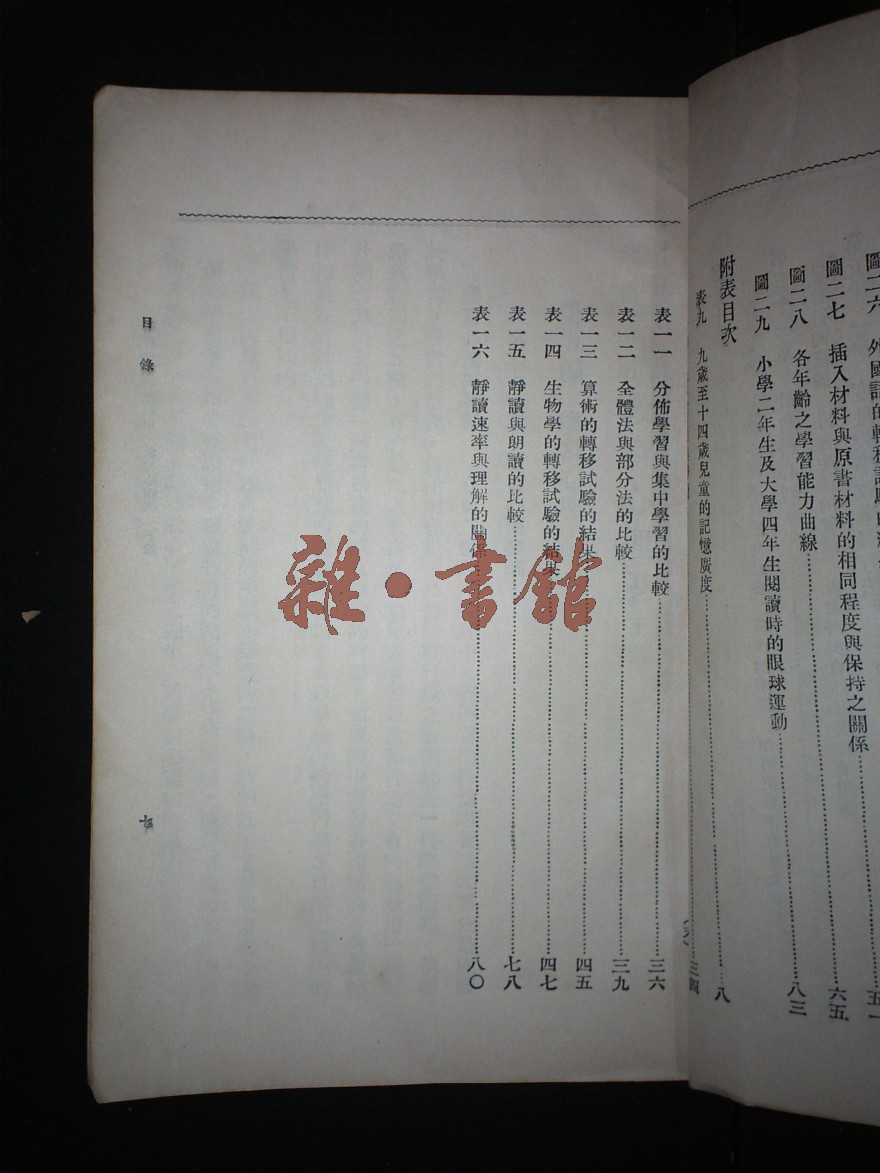 圖二六 外國語的轉移試驗的 五一
圖二七 插入材料與原書材料的相同程度與保持之關係 六五
圖二八 各年齡之學習能力曲線 八三
圖二九 小學二年生及大學四年生閱讀時的眼球運動
附表目次
表九 九歲至十四歲兒童的記憶廣度 八
三四
表一一 分佈學習與集中學習的比較 三六
表一二 全體法與部分法的比較 三九
表一三 算術的轉移試驗的結果 四五
表一四 生物學的轉移試驗的結果 四七
表一五 靜讀與朗讀的比較 七八
表一六 靜讀速率與理解的關係 八〇
目錄
七
雜·書館